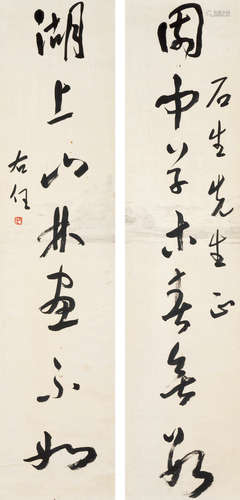 石生先生正
園中草木春無數
湖上山林畫不如
右任